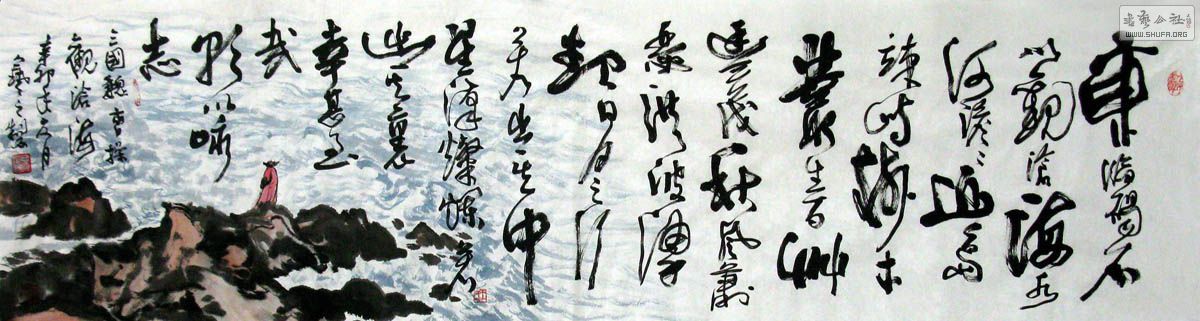 東臨碣石
以觀滄海水
何澹〻山島
竦峙樹木
叢生百艸
豐茂秋風蕭
瑟洪波湧
起日月之行
若出其中
星漢燦爛若
出其裏
幸甚至
哉
歌以詠
志
三國魏曹操
觀滄海
辛卯年
書艺公社
WWW.SHUFA.ORG